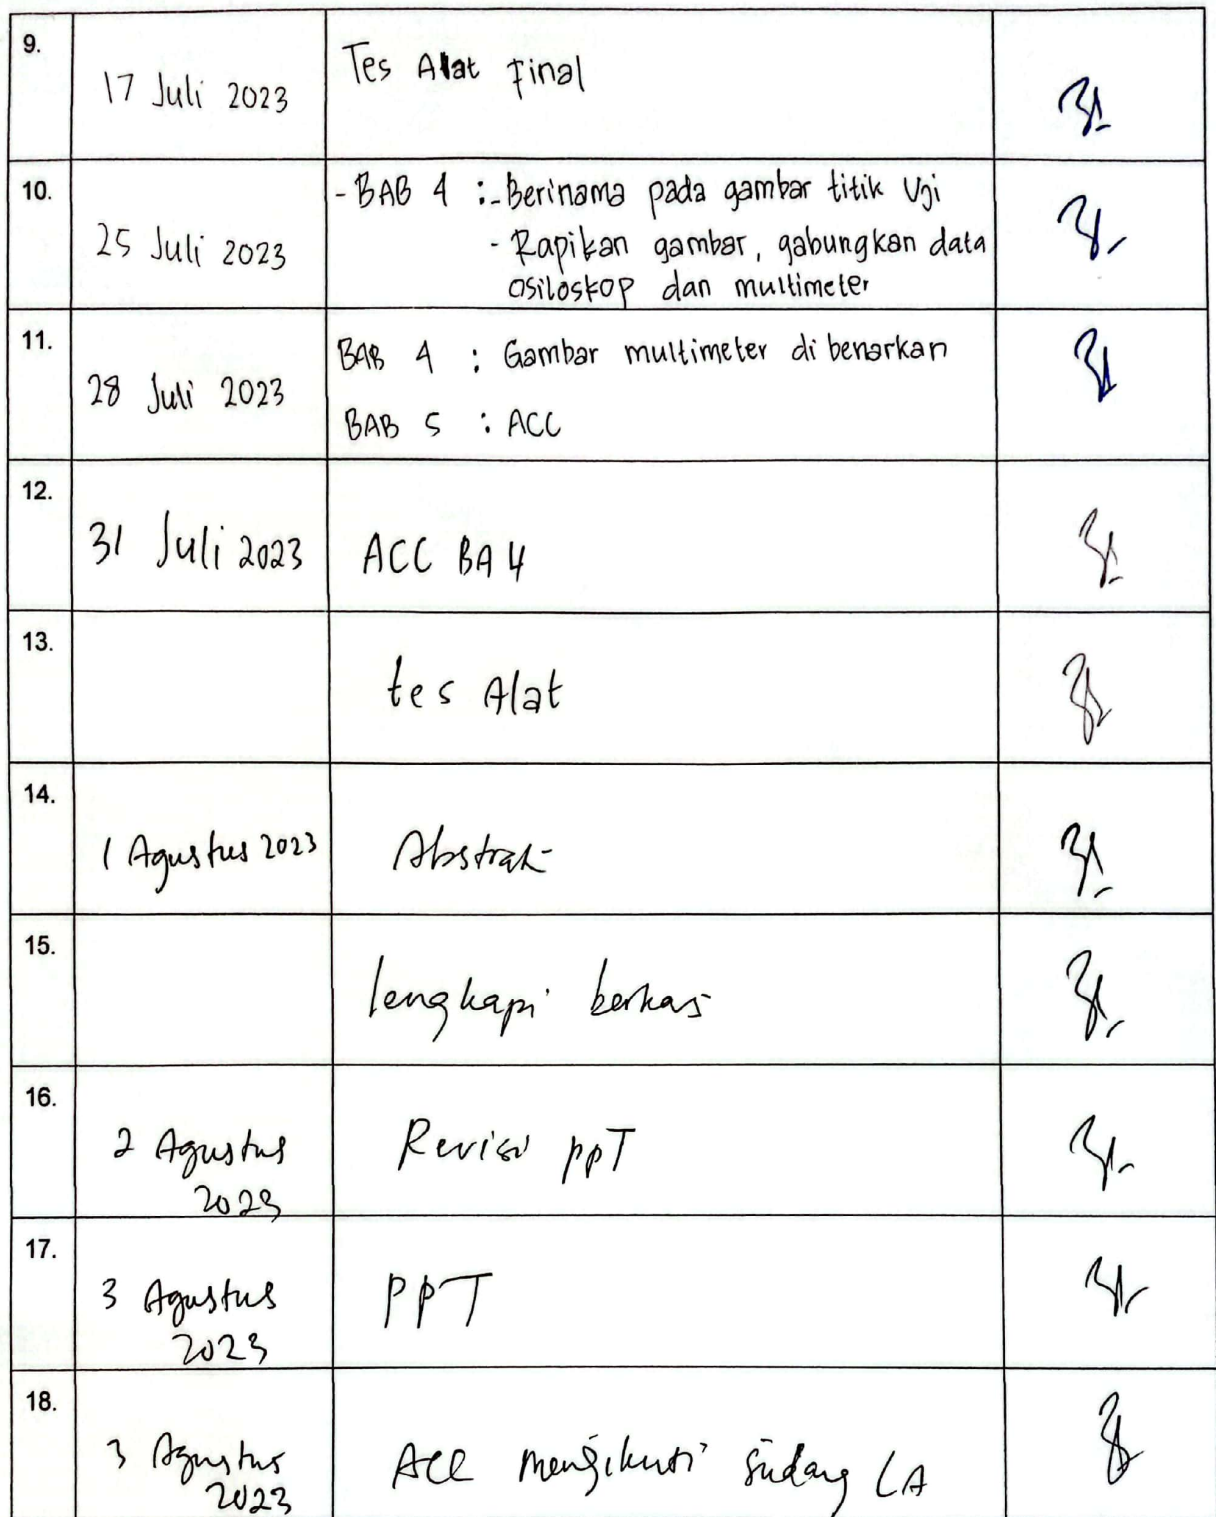 9.
17 Juli 2023
Tes Alat Final
10.
25 Juli 2023
- BAB 4 :- Berinama pada gambar titik Uji
- Rapikan gambar, gabungkan data
osiloskop dan multimeter
11.
28 Juli 2023
BAB 4 : Gambar multimeter di benarkan
BAB 5 : ACC
12.
31 Juli 2023
ACC BA 4
13.
tes Alat
14.
1 Agustus 2023
Abstrak
15.
lengkapi berkas
16.
2 Agustus
2023
Revisi ppT
17.
3 Agustus
2023
PPT
18.
3 Agustus
2023
Acc mengikuti sidang LA